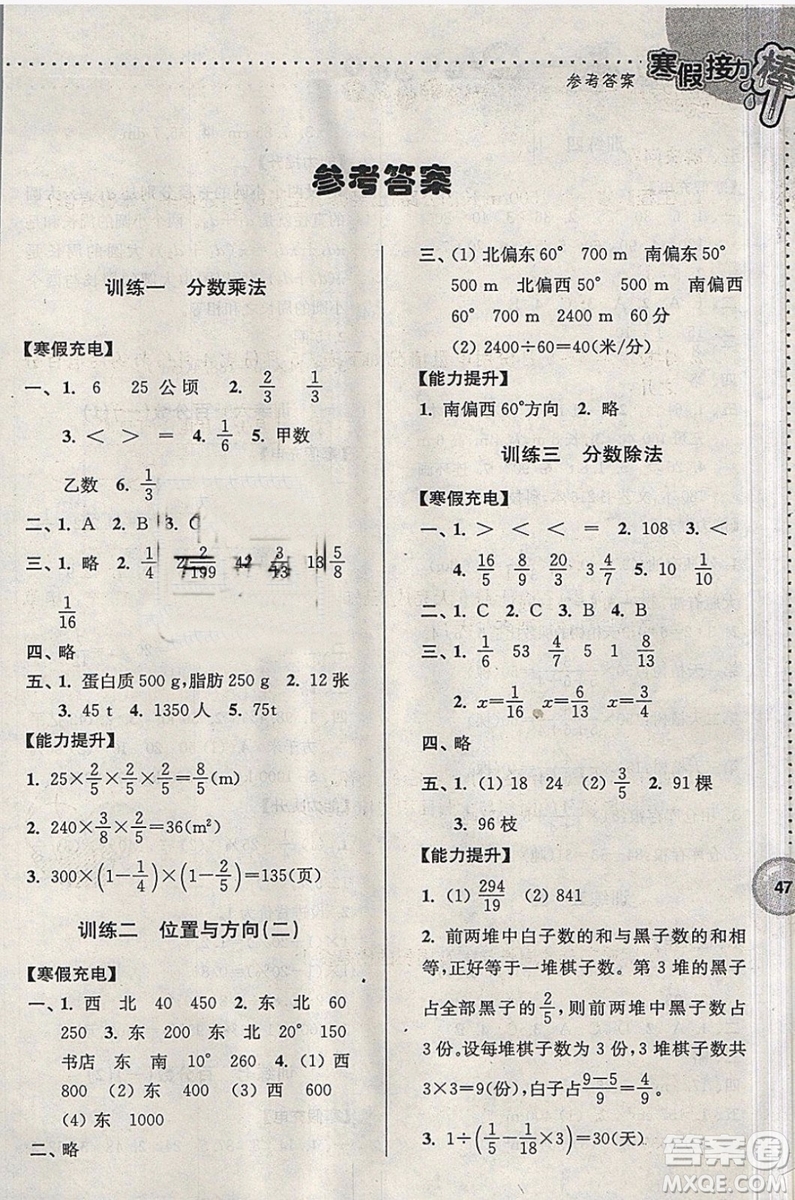 参考答案
寒假接力棒
参考答案
训练一 分数乘法
【寒假充电】
一、1. 6 25 公顷 2. 2/3 1/3
3. < > = 4. 1/6 5. 甲数
乙数 6. 1/3
二、1. A 2. B 3. C
三、1. 略 2. 1/4 13 5/8
1/16
四、略
五、1. 蛋白质 500 g,脂肪 250 g 2. 12 张
3. 45 t 4. 1350 人 5. 75t
【能力提升】
1. 25×2/5×2/5×2/5=8/5(m)
2. 240×3/8×2/5=36(m²)
3. 300×(1-1/4)×(1-2/5)=135(页)
训练二 位置与方向(二)
【寒假充电】
一、1. 西 北 40 450 2. 东 北 60
250 3. 东 200 东 北 20 150
书店 东 南 10° 260 4. (1) 西
800 (2) 东 400 (3) 西 600
(4) 东 1000
二、略
三、(1) 北偏东 60° 700 m 南偏东 50°
500 m 北偏西 50° 500 m 南偏西
60° 700 m 2400 m 60 分
(2) 2400÷60=40(米/分)
【能力提升】
1. 南偏西 60°方向 2. 略
训练三 分数除法
【寒假充电】
一、1. > < < = 2. 108 3. <
4. 16/5 8/9 20/3 3 4/7 5. 10 1/10
二、1. C 2. C 3. B 4. B
三、1. 1/6 53/7 4/5 5 1 8/9
2. x=1/16 x=6/13 x=3/4
四、略
五、1. (1) 18 24 (2) 3/5 2. 91 棵
3. 96 枝
【能力提升】
1. (1) 294/19 (2) 841
2. 前两堆中白子数的和与黑子数的和相
等,正好等于一堆棋子数。第 3 堆的黑子
占全部黑子的 2/5,则前两堆中黑子数占
3 份。设每堆棋子数为 3 份,三堆棋子数共
3×3=9(份),白子占 9-5/9=4/9。
3. 1÷(1/5-1/18×3)=30(天)
47
答案圈
MXQE.COM